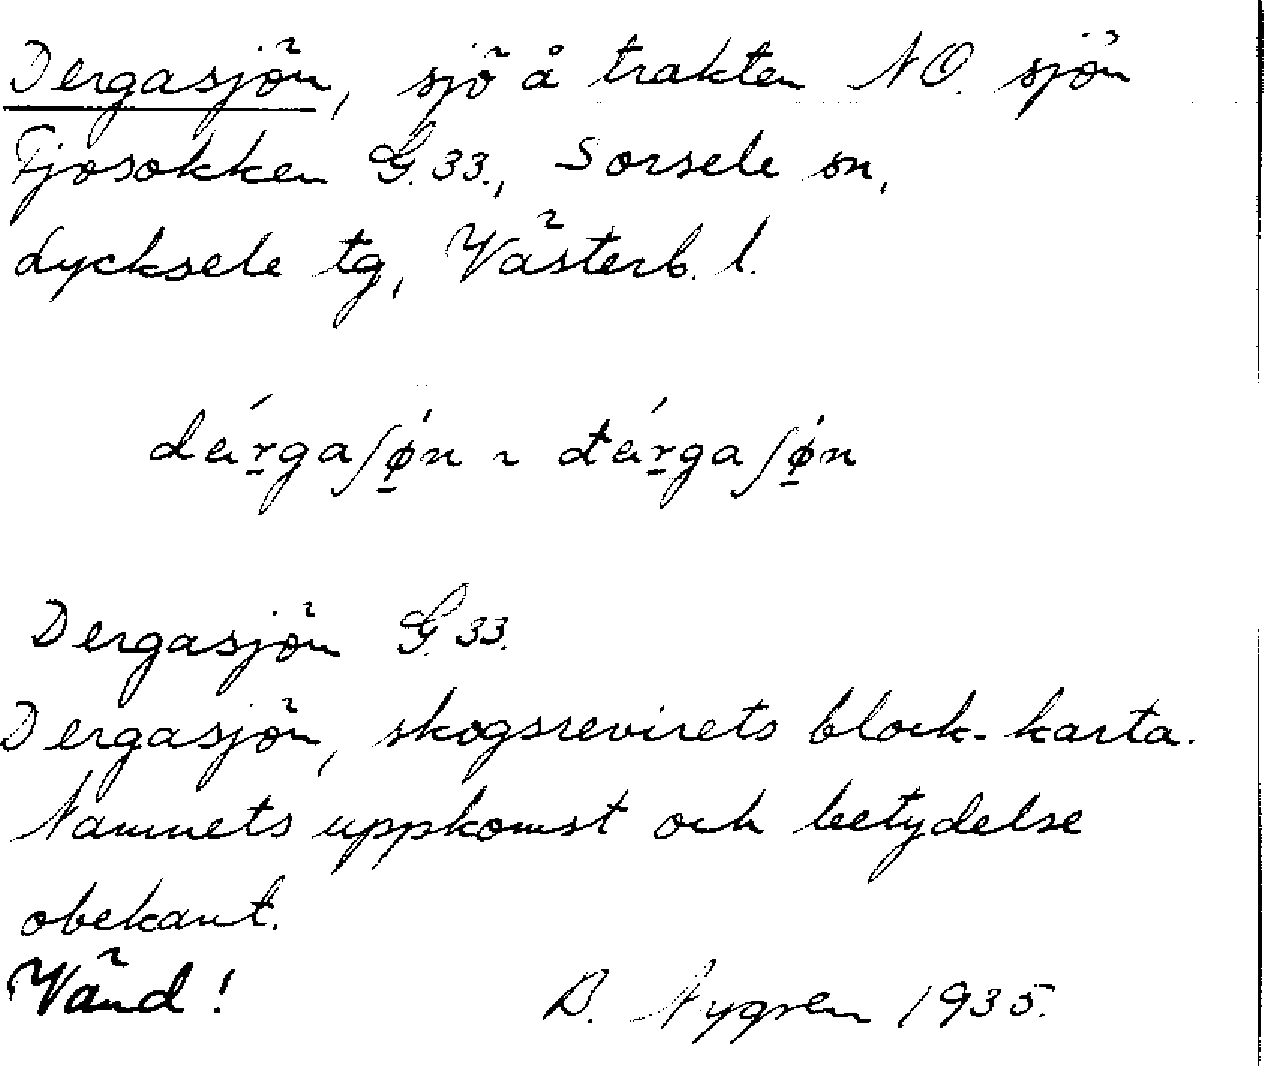 Dergasjön, sjö å trakten NO. sjön
Fjosokken G.33., Sorsele sn,
Lycksele tg, Västerb. l.
Dergasjön G.33.
Dergasjön, skogsrevirets block-karta.
Namnets uppkomst och betydelse
obekant.
Vänd!
D. Nygren 1935.